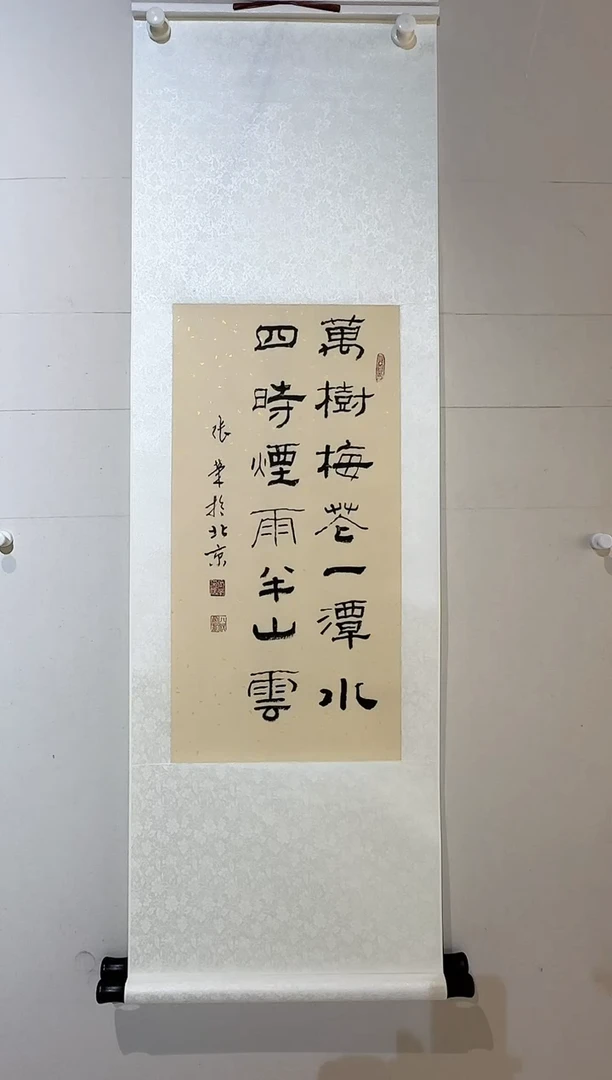 萬樹梅花一潭水
四時煙雨半山雲
張榮於北京